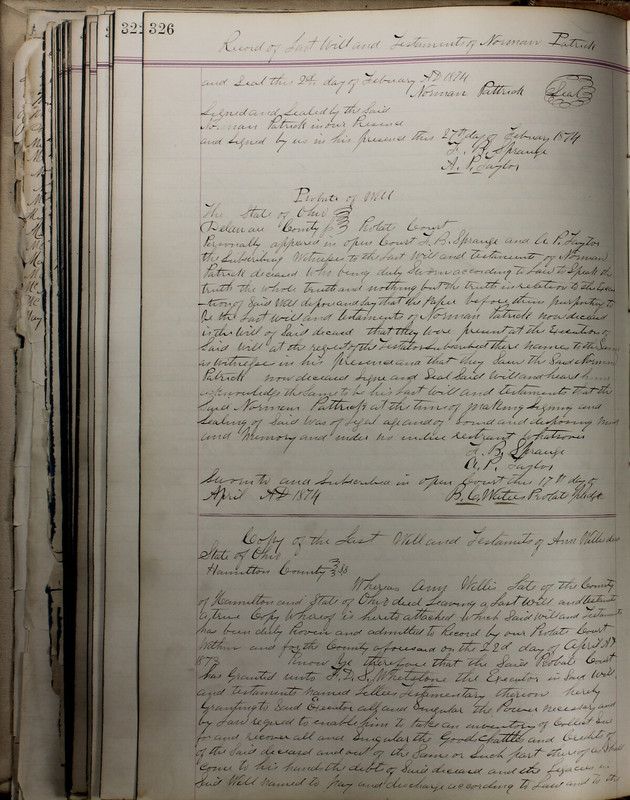 322 326
Record of Last Will and Testaments of Norman Patrick
and Seal this 2d, day of February AD 1874
Norman Pattrick Seal
Signed and Sealed by the Said
Norman Patrick in our
and Signed by us in his presence this 27th day of February 1874
B. Sprauge
A. P. Taylor
Probate of Will
The State of Ohio
County ss Probate Court
Personally appeared in open Court B. Sprauge and A. P. Taylor
the Subscribing Witnesses to the Last Will and testament of Norman
Patrick deceased who being duly Sworn according to Law to Speak the
truth the whole truth and nothing but the truth in relation to the Execu
tion of Said Will depose and Say that the Paper before them purporting to
be the Last Will and testaments of Norman Patrick now deceased
is the Will of Said deceased that they were present at the Execution of
Said Will at the request of the testator Subscribed there names to the Same
as Witnesses in his presence and that they Saw the Said Norman
Patrick now deceased Signe and Seal Said Will and heard him
acknowledge the Same to be his Last Will and testaments that the
Said Norman Pattrick at the time of making Signing and
Sealing of Said was of legal age and of Sound and disposing mind
and Memory and under his restraint whatsoever
B. Sprauge
A. P. Taylor
Sworn to and Subscribed in open Court this 17th day of
April AD 1874 B. C. Waters Probate Judge
Copy of the Last Will and Testaments of Ann Willis
State of Ohio
Hamilton County ss
Whereas Amy Wellis Late of the County
of Hamilton and State of Ohio died Leaving a Last Will and testament
a true Copy whereof is hereto attached which Said Will and Testament
has been duly Proven and admitted to Record by our Probate Court
within and for the County aforesaid on the 22d day of April AD
187 Know Ye therefore that the Said Probate Court
has Granted unto F. D. S. Whetstone the Executor in Said Will
and testaments named Letters Testimentary thereon hereby
Granting to Said Executor all and Singular the Power necessary and
by Law required to enable him to take an inventory of Collect Sue
for and recover all and Singular the Good Chattles and Credits of
of the Said deceased and out of the Same or Such part there of as Shall
come to his hands the debt of Said deceased and the Legacies in
Said Will named to Pay and discharge according to Law and to the